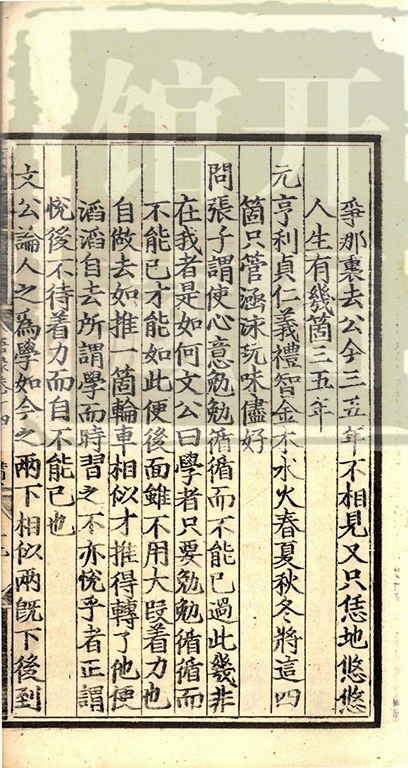 爭那裏去公今三五年不相見又只恁地悠悠
人生有幾箇三五年
元亨利貞仁義禮智金木水火春夏秋冬將這四
箇只管涵泳玩味儘好
問張子謂使心意勉勉循循而不能已過此幾非
在我者是如何文公曰學者只要勉勉循循而
不能已才能如此便後面雖不用大段着力也
自做去如推一箇輪車相似才推得轉了他便
滔滔自去所謂學而時習之不亦悅乎者正謂
悅後不待着力而自不能已也
文公論人之爲學如今之兩下相似兩旣下後到